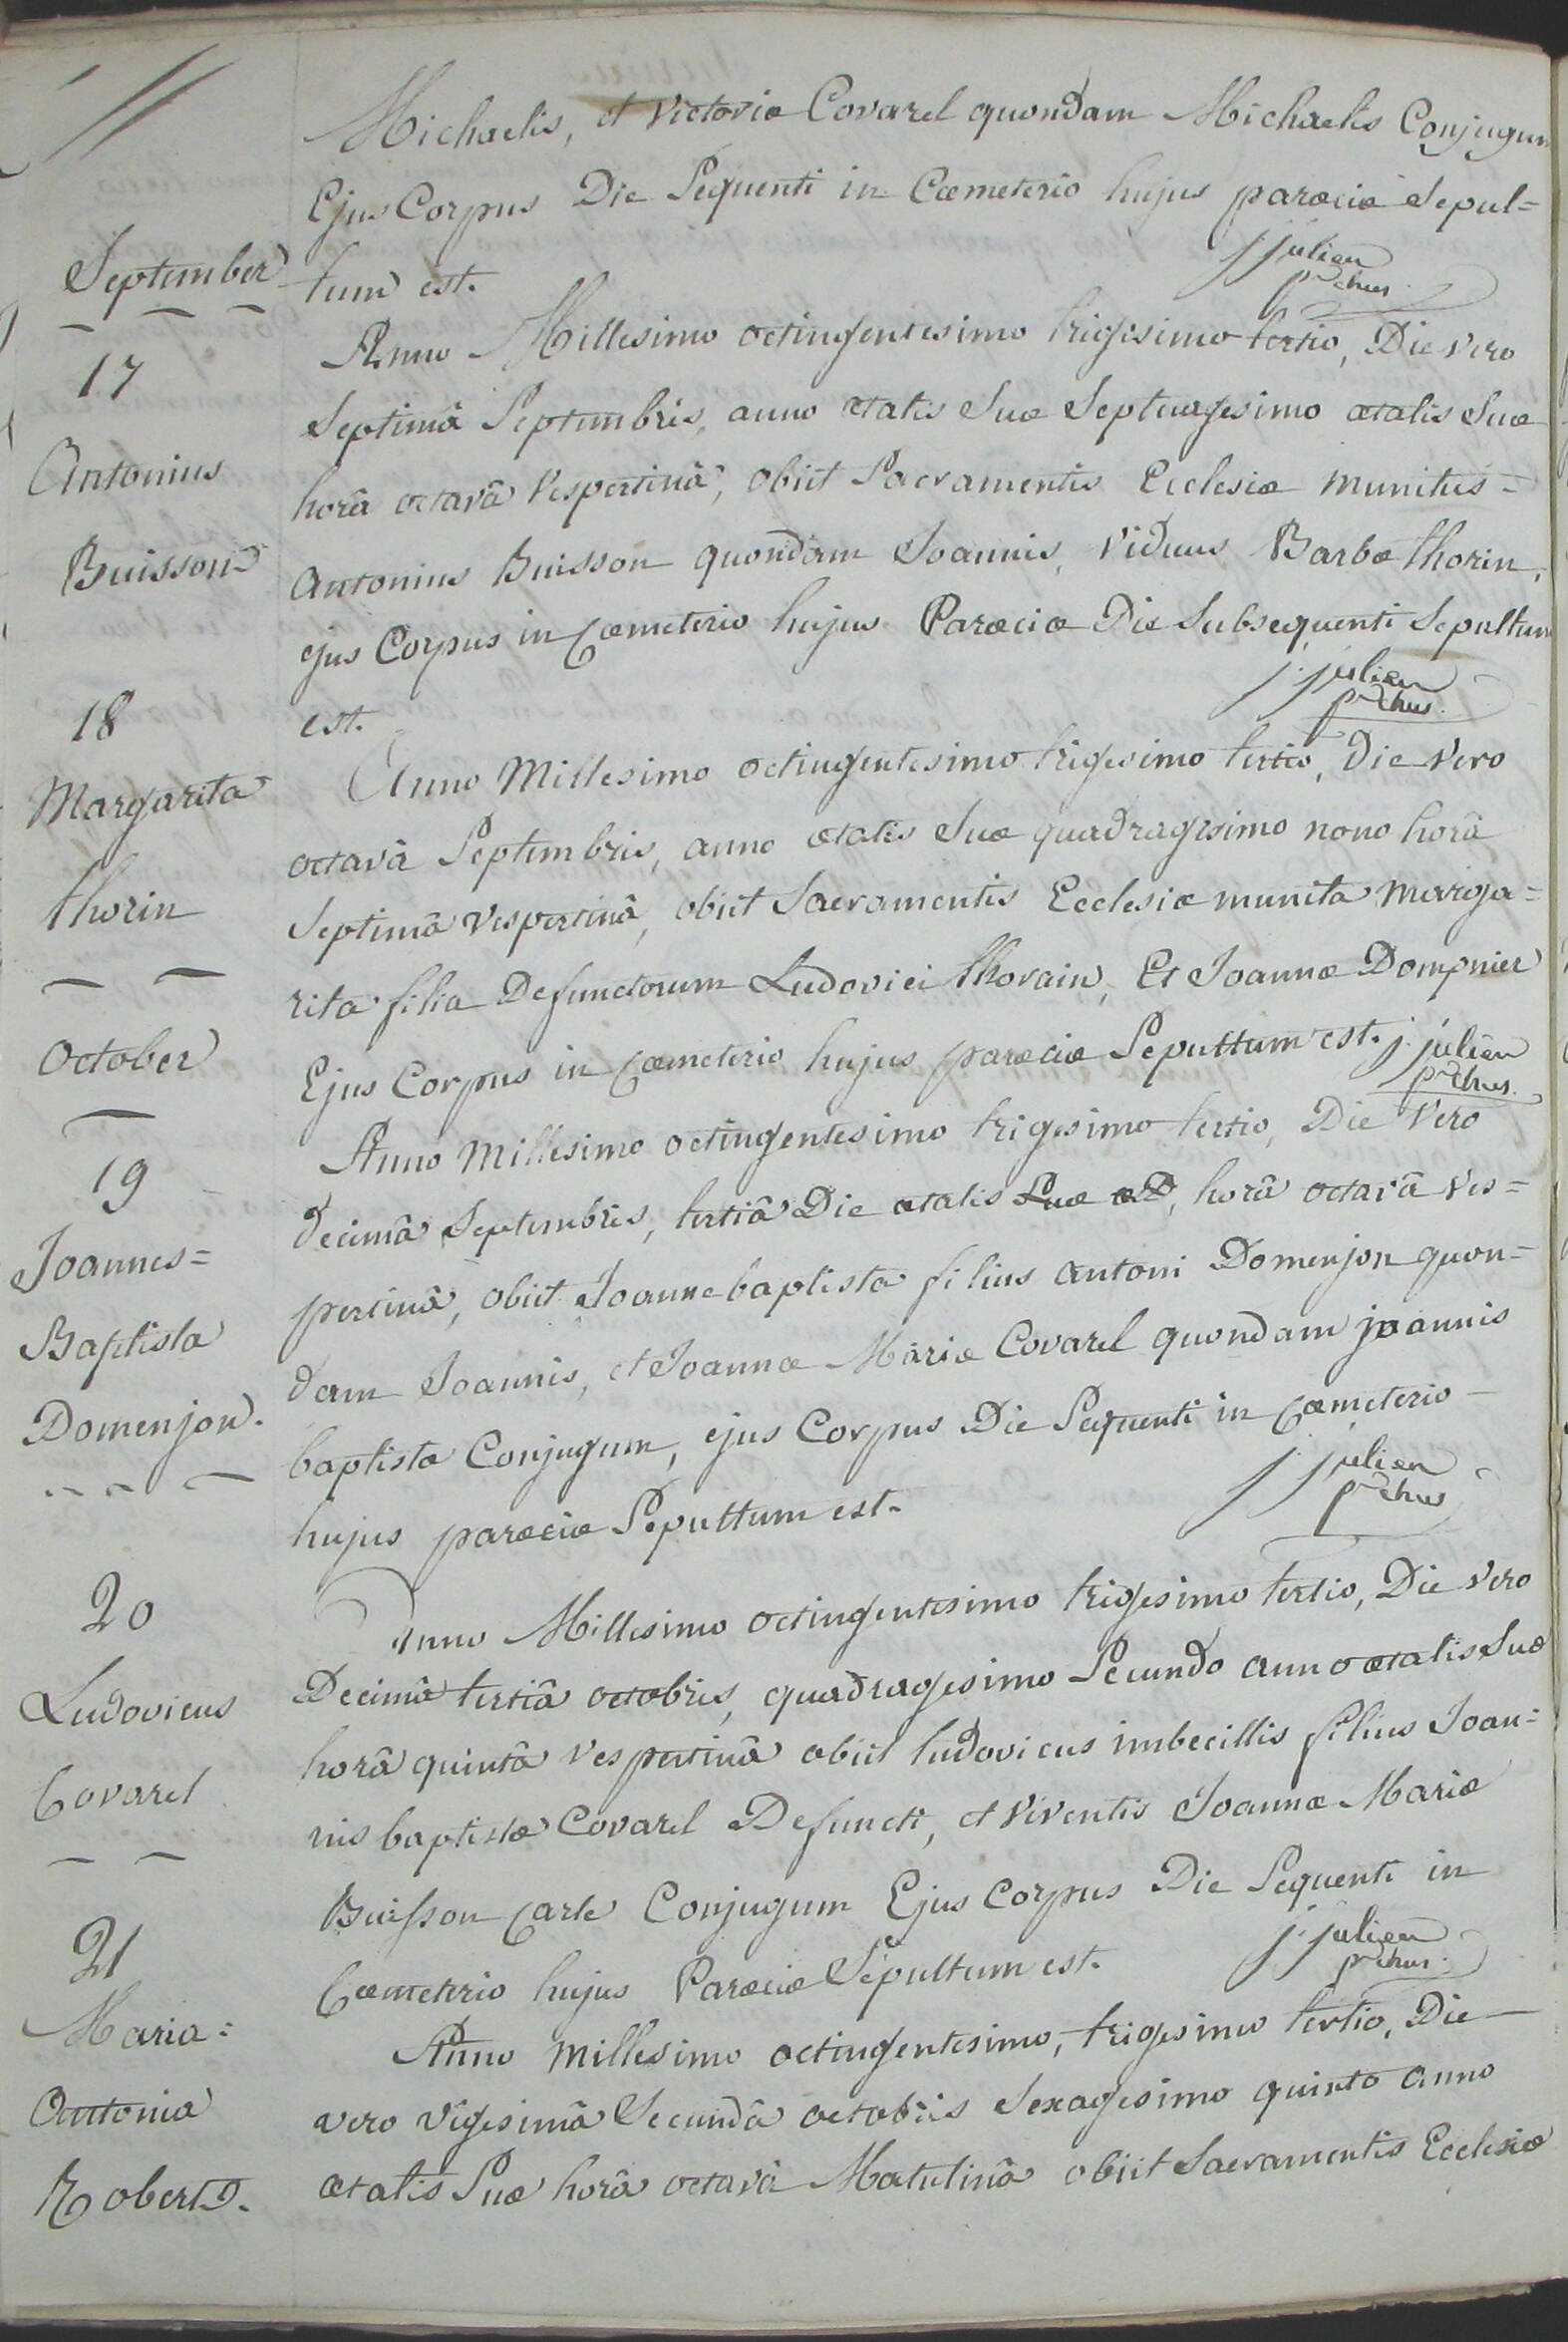 Michaelis, et Victoriæ Covarel quondam Michaelis Conjugum
Ejus Corpus Die Sequenti in Cæmeterio hujus parœciæ Sepul=
tum est.
j julien
September
17
Antonius
Buisson
Anno Millesimo octingentesimo trigesimo tertio, Die vero
Septimâ Septembris, anno ætatis Suæ Septuagesimo ætatis Suæ
horâ octavâ Vespertinâ, obiit Sacramentis Ecclesiæ munitus=
Antonius Buisson quondam Joannis, Viduus Barbæ thorin,
ejus Corpus in Cæmeterio hujus Parœciæ Die Subsequenti Sepultum
est.
j. julien
18
Margarita
thorin
Anno Millesimo octingentesimo trigesimo tertio, Die Vero
octavâ Septembris, anno ætatis Suæ quadragesimo nono horâ
Septimâ Vespertinâ, obiit Sacramentis Ecclesiæ munita Marga=
rita filia Defunctorum Ludovici thorain, Et Joannæ Dompnier
Ejus Corpus in Cæmeterio hujus parœciæ Sepultum est. j. julien
October
19
Joannes=
Baptista
Domenjon.
Anno Millesimo octingentesimo trigesimo tertio, Die Vero
decimâ Septembris, tertiâ Die ætatis Suæ, horâ octavâ Ves=
pertinâ, obiit Joanne baptista filius antoni Domenjon quon=
dam Joannis, et Joannæ Mariæ Covarel quondam joannis
baptistæ Conjugum, ejus Corpus Die Sequenti in Cæmeterio
hujus parœciæ Sepultum est.
j julien
20
Ludovicus
Covarel
Anno Millesimo octingentesimo trigesimo tertio, Die Vero
Decimâ tertiâ octobris, quadragesimo Secundo anno ætatis Suæ
horâ quintâ Vespertinâ obiit ludovicus imbecillis filius Joan=
nis baptistæ Covarel Defuncti, et Viventis Joannæ Mariæ
Buisson Carle Conjugum Ejus Corpus Die Sequenti in
Cæmeterio hujus Parœciæ Sepultum est.
j. julien
21
Maria=
Antonia
Robert.
Anno Millesimo octingentesimo, trigesimo tertio, Die
vero Vigesimâ Secundâ octobris Sexagesimo quinto anno
ætatis Suæ horâ octavâ Matutinâ obiit Sacramentis Ecclesiæ